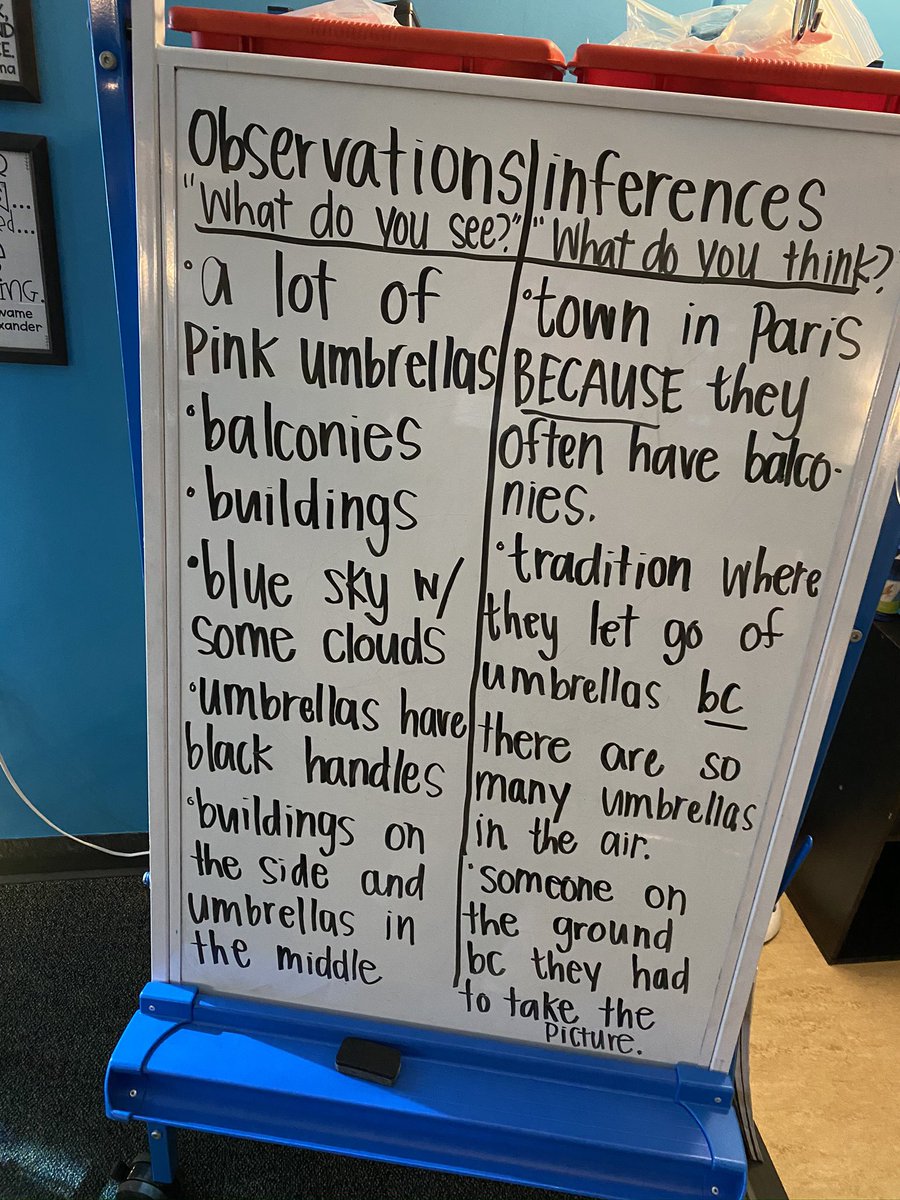 ND
CE.
na
R
ed...
ING.
wame
exander
Observations
"What do you see?"
• a lot of
pink umbrellas
• balconies
• buildings
• blue sky w/
some clouds
• umbrellas have
black handles
• buildings on
the side and
umbrellas in
the middle
inferences
"What do you think?
• town in Paris
BECAUSE they
often have balco-
nies.
• tradition where
they let go of
umbrellas bc
there are so
many umbrellas
in the air.
• someone on
the ground
bc they had
to take the
picture.